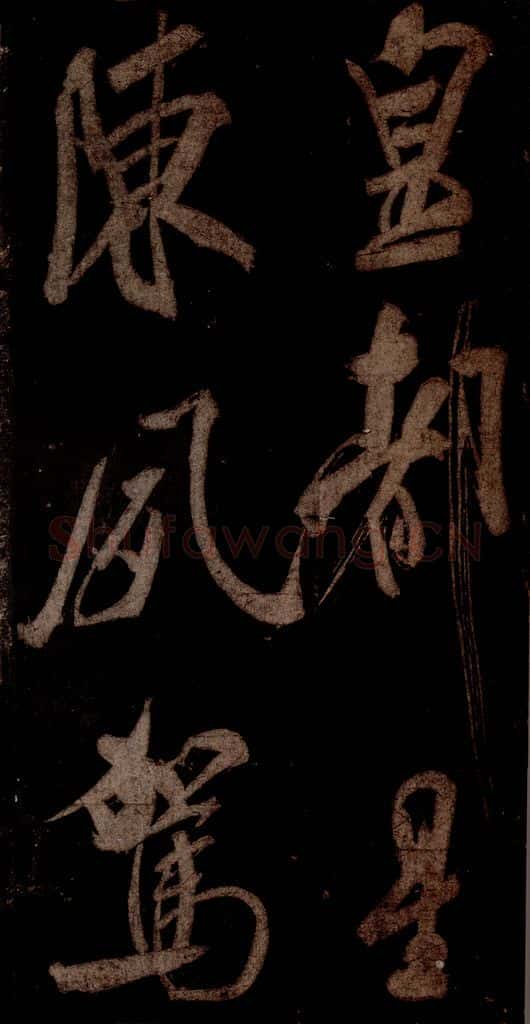 皇都星
陳夙駕
Shufawang.CN